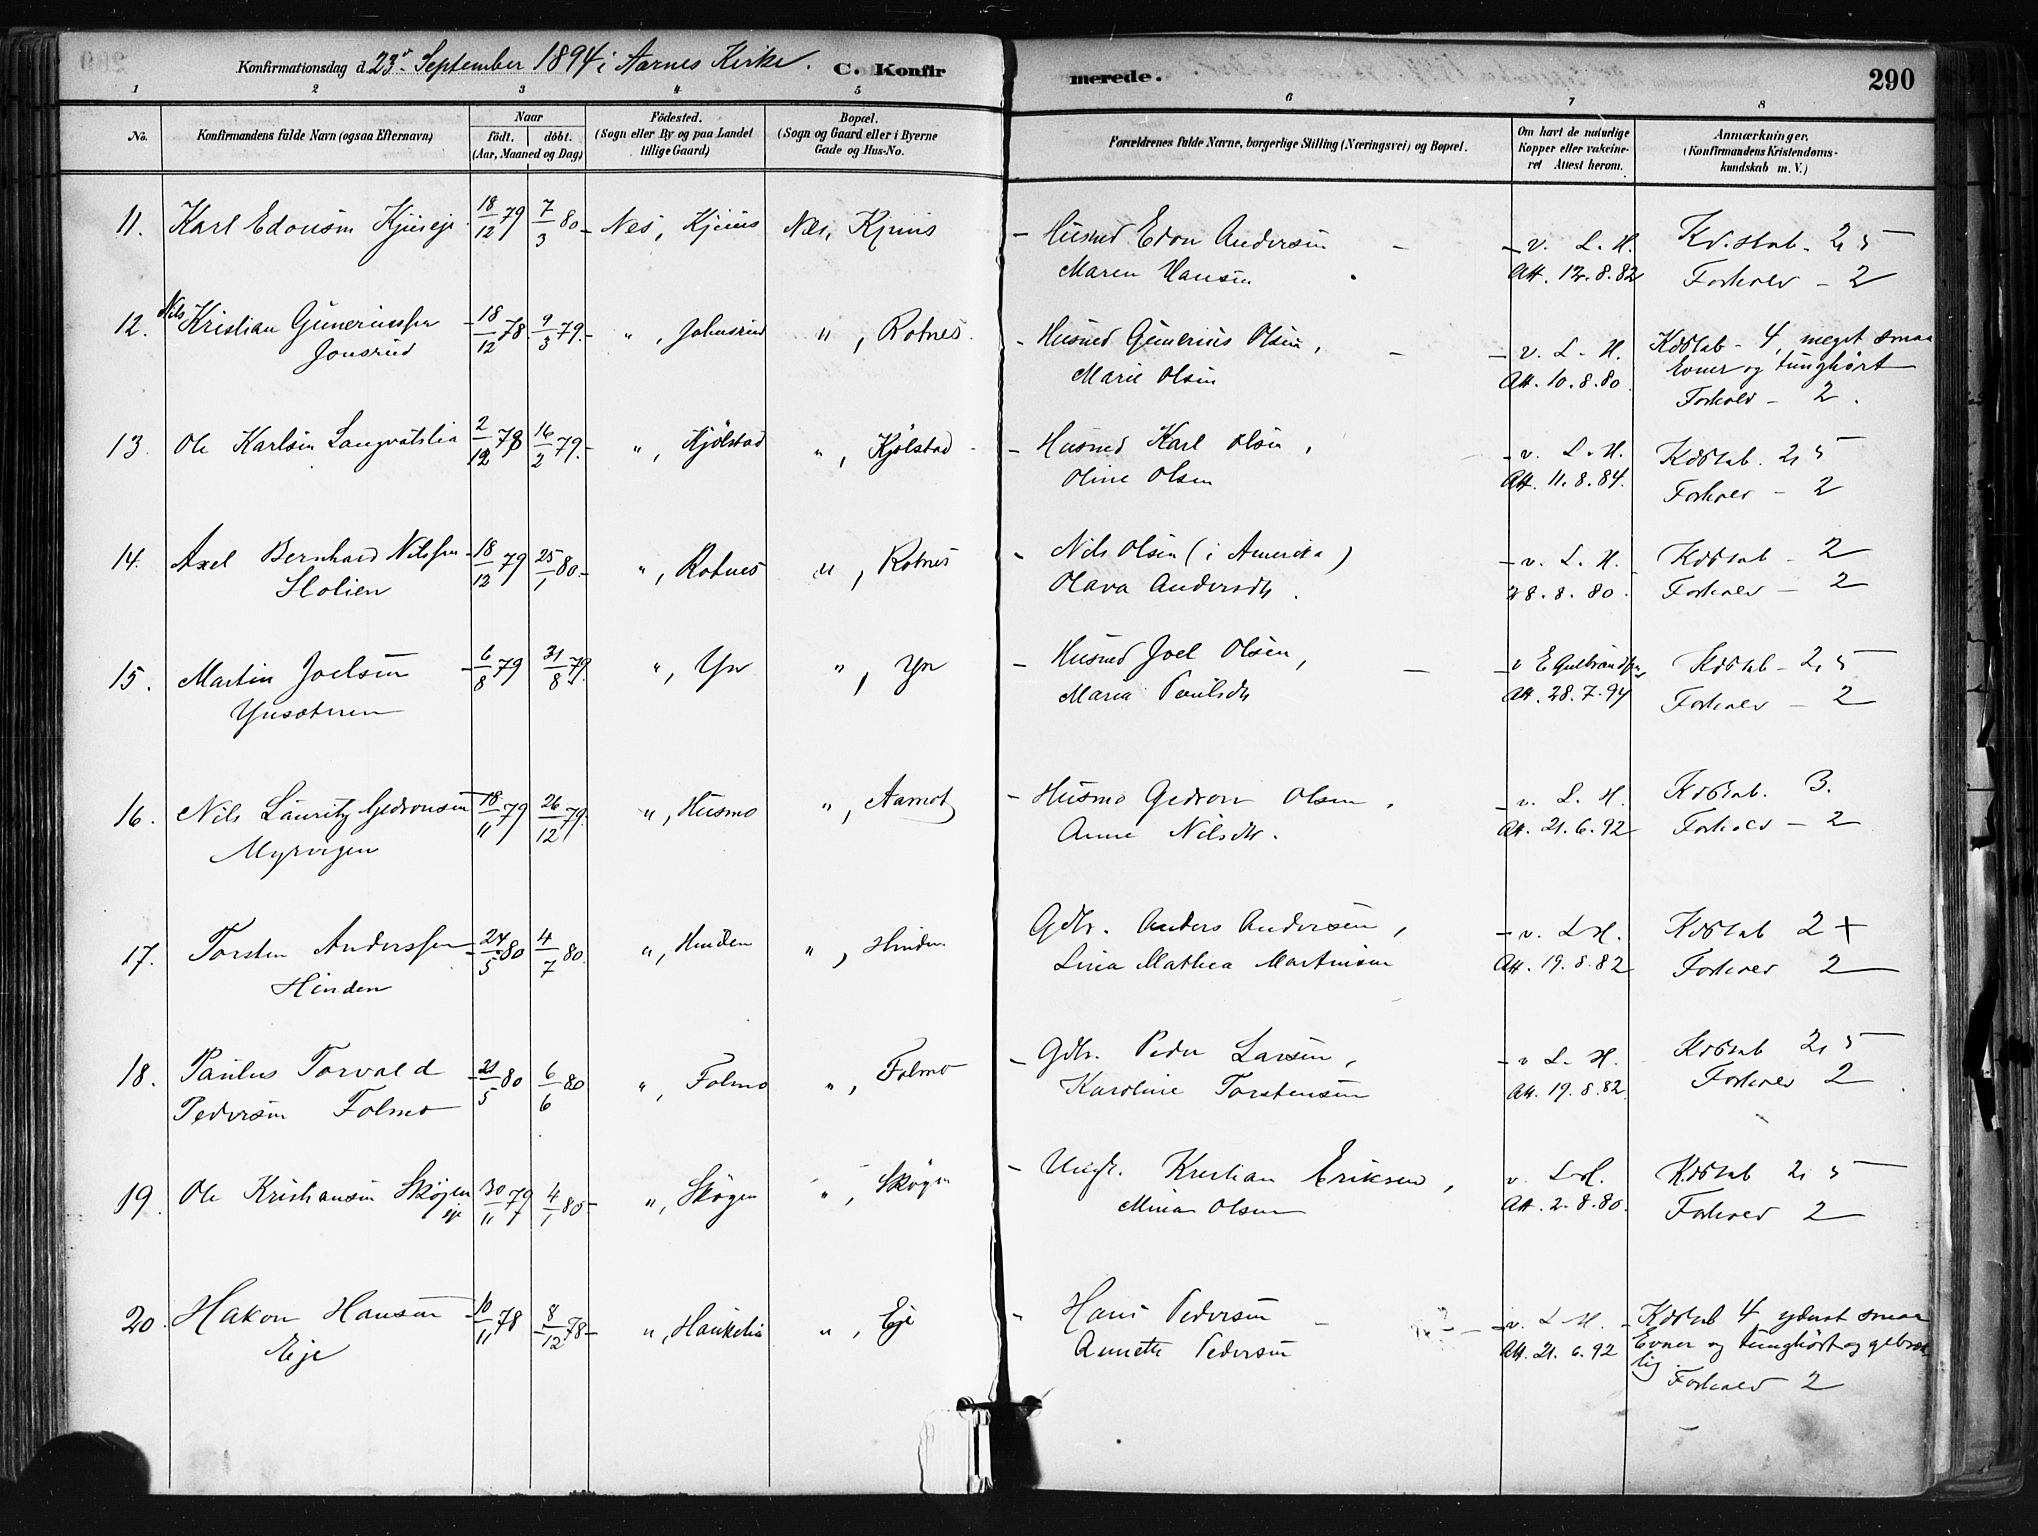 Konfirmationsdag d. 23de September 1894 i Aarnes Kirke. C. Konfirmerede. 290
1 2 3 4 5 6 7 8
No. Konfirmandens fulde Navn (ogsaa Efternavn) Naar födt. döbt. (Aar, Maaned og Dag) Födested. (Sogn eller By og paa Landet tillige Gaard) Bopæl. (Sogn og Gaard eller i Byerne Gade og Hus-No. Forældrenes fulde Navne, borgerlige Stilling (Næringsvei) og Bopæl. Om havt de naturlige Kopper eller vakcineret Attest herom. Anmærkninger. (Konfirmandens Kristendomskundskab m. V.)
11. Karl Edonsen 18/12 79 7/3 80 Nes, Nes, Husmd Edon Andersen v. L. H. Kd.skab. 2,5
Maren Hansen Att. 12.8.82 Forhold - 2
12. Nils Kristian Guneriussen 18/12 78. 9/3 79. " , Johnsrud " , Rotnes. Husmd Gunerius Olsen, v. L. H. Kdskab - 4, meget smaa
Jonsrud Marie Olsen Att. 10.8.80 Evner og tunghört
Forhold - 2.
13. Ole Karlsen Langvatslia 2/12 78 16/2 79. " , Kjölstad " , Kjölstad Husmd Karl Olsen, v. L. H. Kdskab. 2,5
Oline Olsen Att. 11.8.84. Forhold - 2
14. Axel Bernhard Nilssen 18/12 79 25/1 80 " , Rotnes " , Rotnes Nils Olsen (i Amerika) v. L. H. Kdskab - 2
Holien Olava Andersdtr. 28.8.80 Forhold - 2
15. Martin Joelsen 6/8 79 31/8 79. " , Yn " , Yn Husmd Joel Olsen, v E Gulbrandsen Kdskab - 2,5
Ynsæteren Maria Paulsdtr Att. 28.7.94 Forhold - 2
16. Nils Lauritz Gedeonsen 18/11 79 26/12 79. " , Husmo " , Aamot Husmd Gedeon Olsen, v. L. H. Kdskab. 3.
Myrvigen Anne Nilsdtr. Att. 21.6.92 Forhold - 2
17. Torsten Anderssen 24/5 80 4/7 80. " , Hinden " , Hinden Gdbr. Anders Andersen, v. L H. Kdskab 2 +
Hinden Lina Mathea Martinsen Att. 19.8.82 Forhold 2
18. Paulus Torvald 21/5 80 6/6 80 " , Folmo " , Folmo Gdbr. Peder Larsen, v L. H. Kdskab 2,5
Pedersen Folmo Karoline Torstensen Att. 19.8.82 Forhold 2
19. Ole Kristiansen Skögen 30/11 79 4/1 80 " , Skögen " , Skögen Kristian Eriksen, v. L. H. Kdskab 2,5
eje Mina Olsen Att. 2.8.80. Forhold 2
20. Hakon Hansen 10/11 78 8/12 78 " , Haukelia " , Eje Hans Pedersen v. L H. Kdskab 4 yderst smaa
Eje Annette Pedersen Att. 21.6.92 Evner og tunghört og gebrækelig
Forhold 2